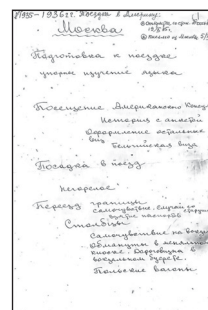 1935-1936 гг. Поездка в Америку.
Москва
Подготовка к поездке
упорное изучение языка
Посещение Американского Конс
История с анкетой
Оформление остальных
виз
Бельгийская виза
Посадка в поезд
Негорелое
Переезд границы
самочувствие. Случай со
Столбцы
Самочувствие на
Обмануты в
киоске. Дороговизна в
вокзальном буфете.
Польские вагоны